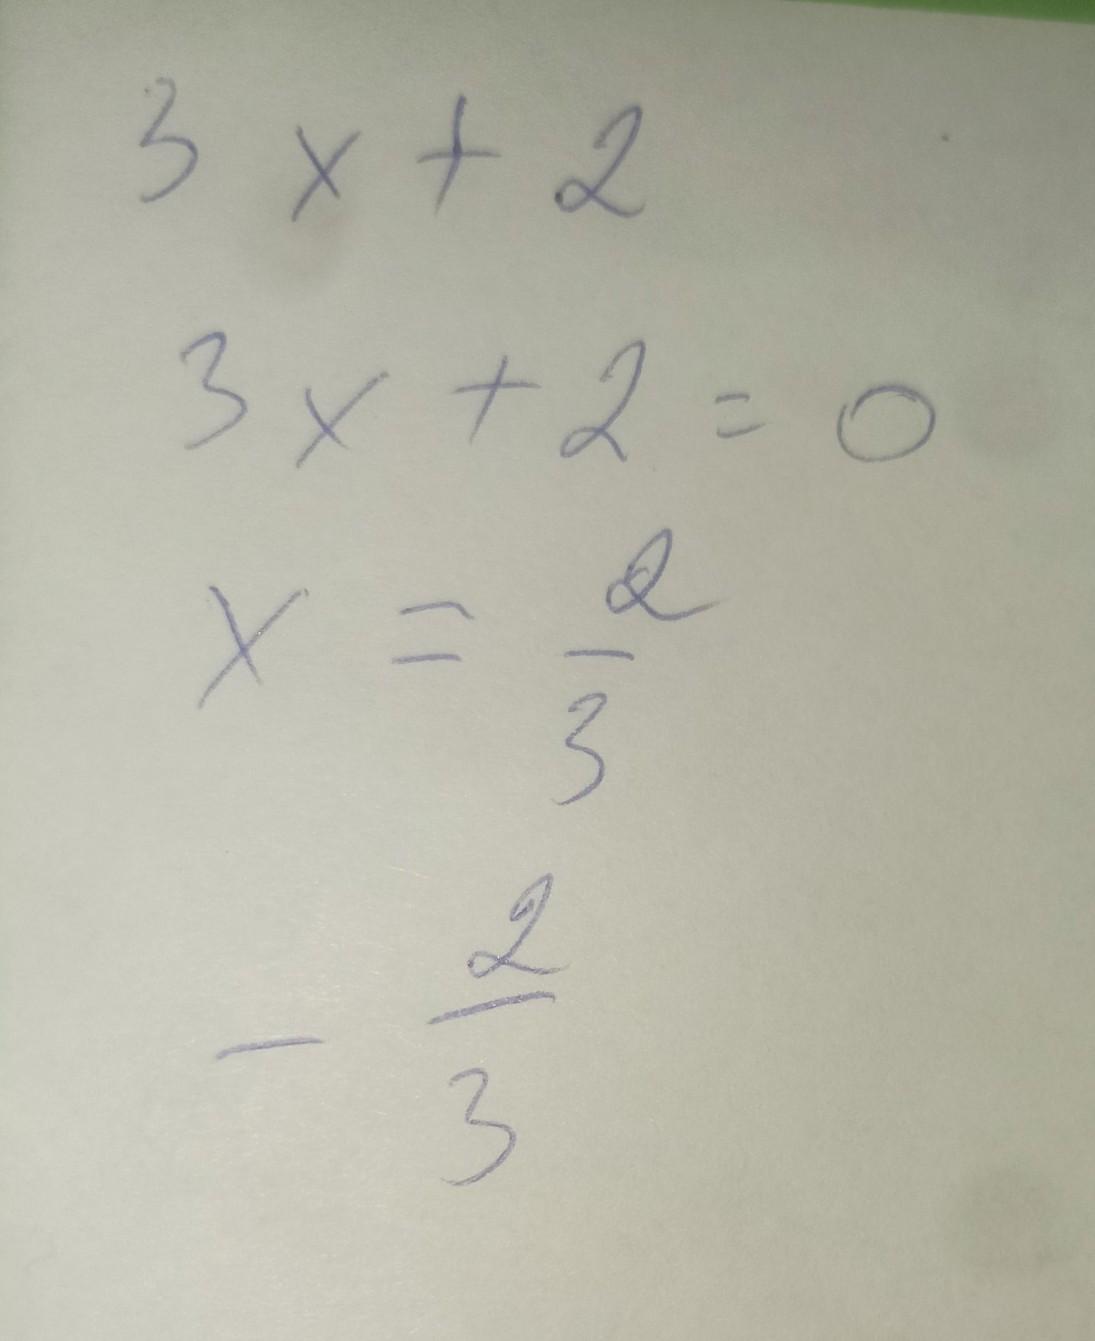 3x + 2
3x + 2 = 0
x = 2/3
- 2/3